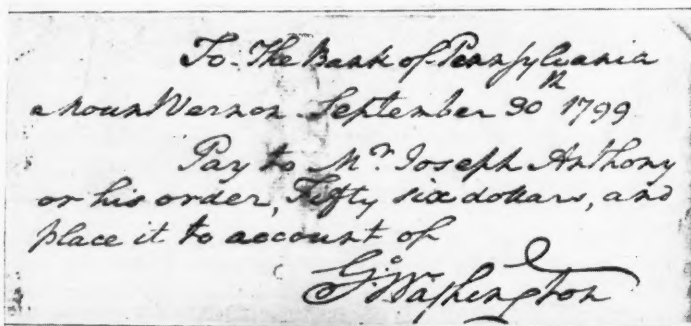 To The Bank of Pennsylvania
Mount Vernon September 30th 1799
Pay to Mr. Joseph Anthony
or his order, Fifty six dollars, and
place it to account of
Go: Washington